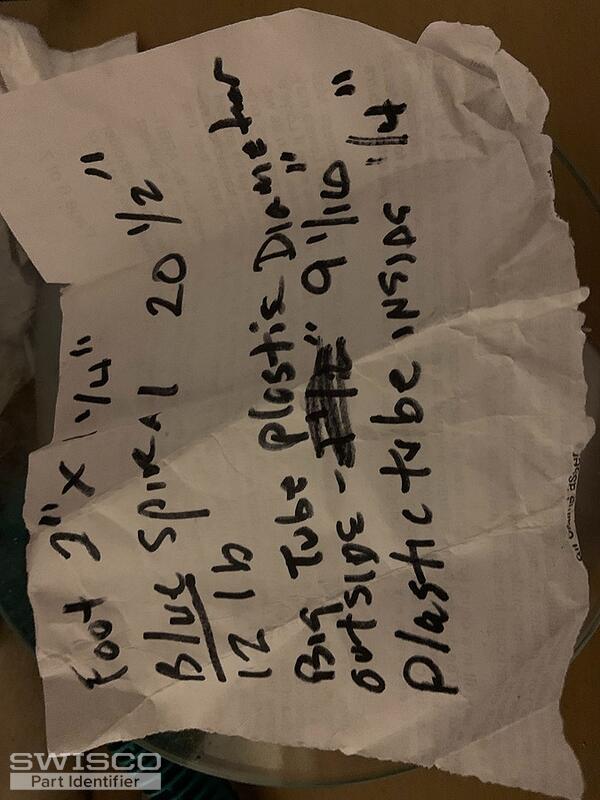 foot 2" x 1/4"
Blue spiral 20 1/2"
12 lb
Big Tube plastic Diameter
outside - 9 1/16"
plastic tube inside 1/4"
SWISCO
Part Identifier